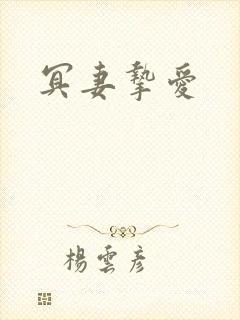 冥妻摯愛
楊雲彥